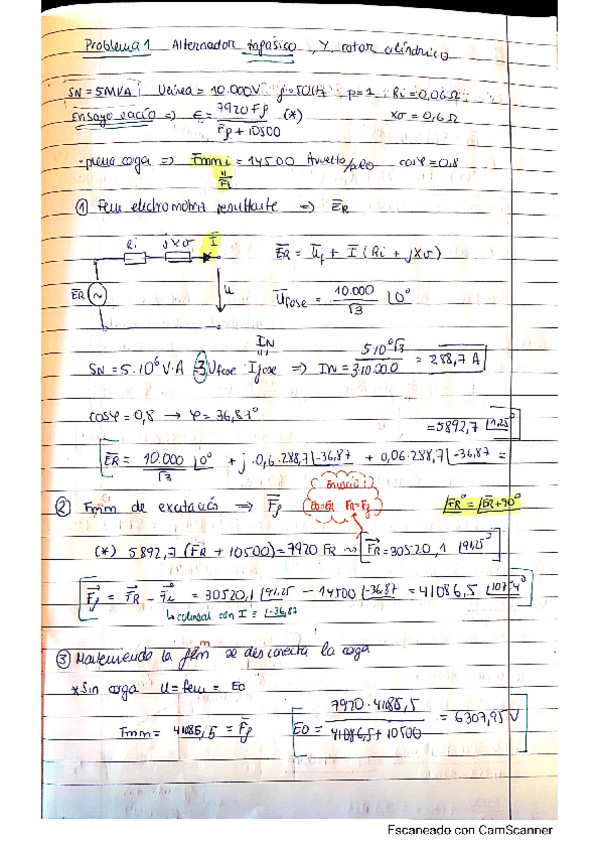 Problema 1 Alternador trifásico, Y, rotor cilíndrico
SN = 5MVA Ulinea = 10.000V f=50Hz p=1 Ri=0,06Ω
Ensayo vacío => E = 7920 Fp / Fp + 10500 (*) Xσ = 0,6Ω
- plena carga => Fmmi = 14500 Avuelta/polo cosφ=0.8
Fi
① Fem electromotriz resultante => ER
Ri jXσ I
ER = Uf + I (Ri + jXσ)
ER U
Ufase = 10.000/√3 |0°
IN
SN = 5.10⁶ V.A = 3 Ufase Ifase => IN = 5.10⁶√3 / 3.10.000 = 288,7 A
cosφ = 0,8 → φ = 36,87°
= 5892,7 |1,25°
ER = 10.000/√3 |0° + j.0,6.288,7|-36,87 + 0,06.288,7|-36,87 =
② Fmm de excitación => Ff
E0=ER FR=Ff
|FR° = |ER+90°
(*) 5892,7 (FR + 10500) = 7920 FR ~> FR = 30520,1 |91,25°
Ff = FR - Fi = 30520,1 |91,25 - 14500 |-36,87 = 41086,5 |107,4°
↳ colineal con I = |-36,87
③ Manteniendo la fmm se desconecta la carga
* Sin carga U = fem = E0
Fmm = 41085,5 = Ff
E0 = 7920.41085,5 / 41086,5 + 10500 = 6307,95 V
Escaneado con CamScanner